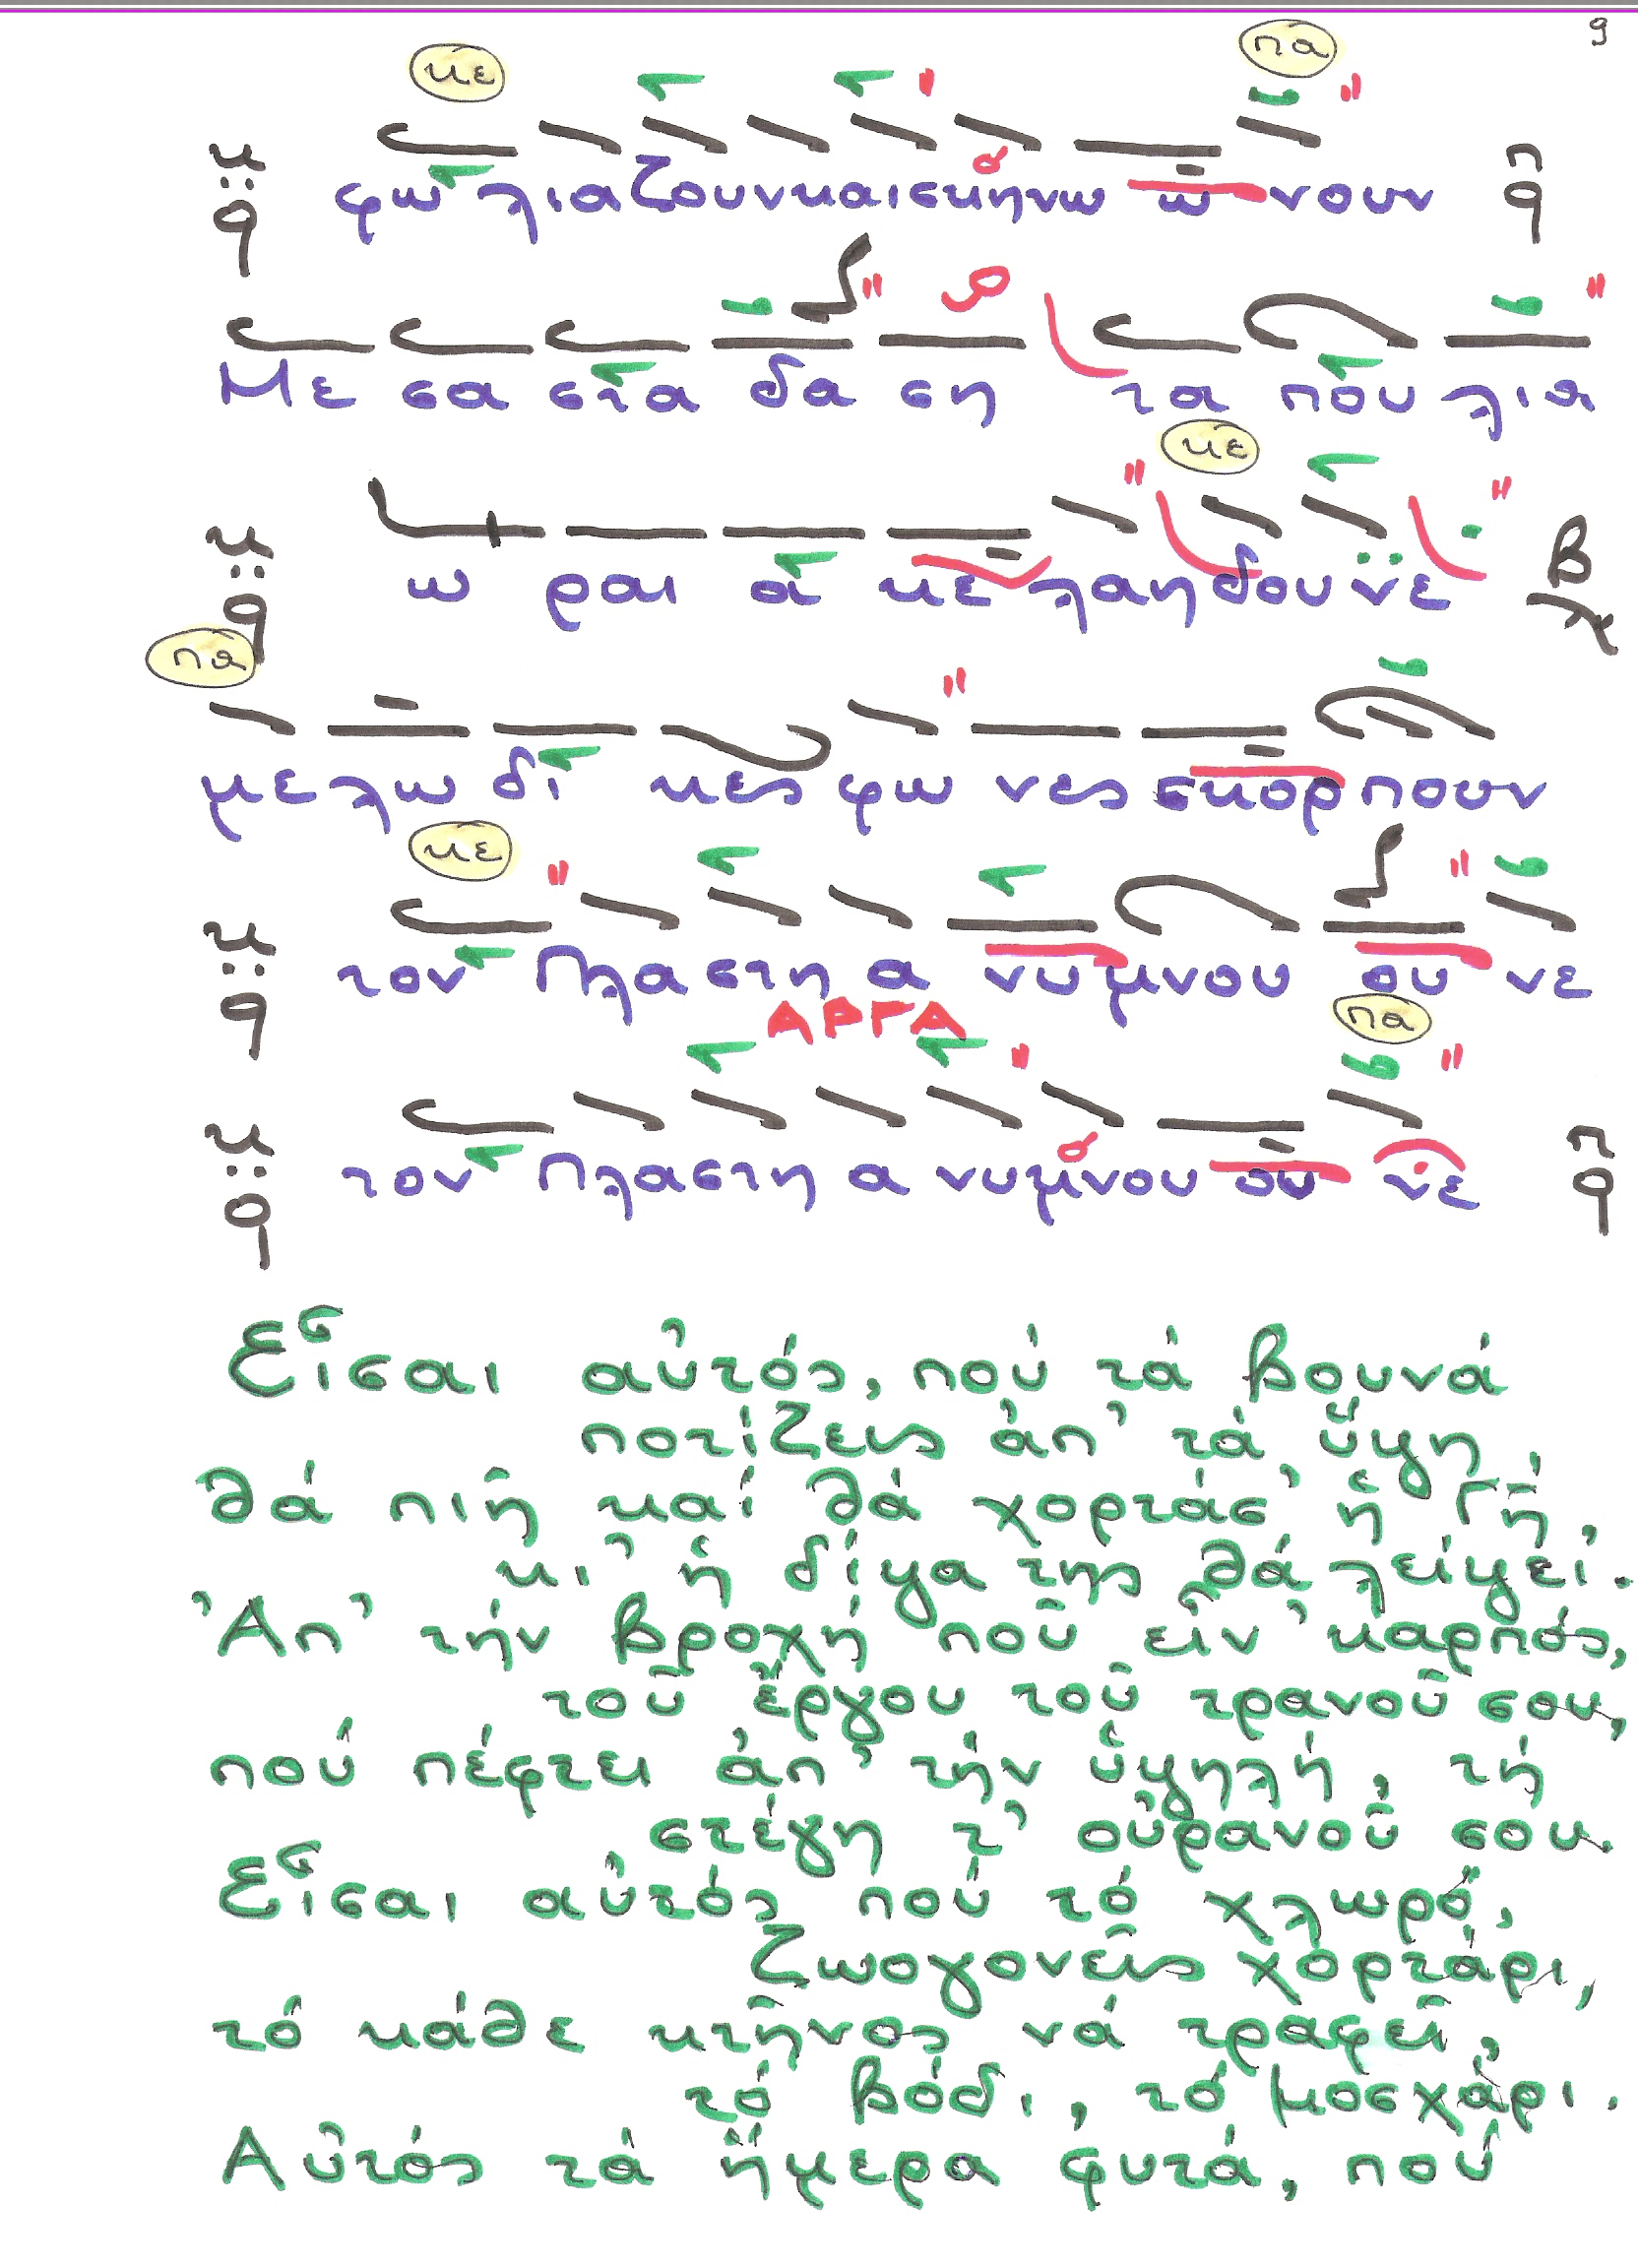 9
κε πα
φω λιαζουνκαισκηνω ω νουν
Με σα στα δα ση τα που λια
κε
ω ραι α κε λαηδουνε
πα
με λω δι κες φω νες σκορπουν
κε
τον Πλαστη α νυμνου ου νε
ΑΡΓΑ
πα
τον Πλαστη α νυμνου ου νε
Εἶσαι αὐτός, πού τά βουνά
ποτίζεις ἀπ' τά ὕψη,
θά πιῆ καί θά χορτάσ' ἡ Γῆ,
κι' ἡ δίψα της θά λείψει.
Ἀπ' τήν βροχή ποὔ εἶν' καρπός,
τοῦ ἔργου τοῦ τρανοῦ σου,
πού πέφτει ἀπ' τήν ὑψηλή, τή
στέγη τ' οὐρανοῦ σου.
Εἶσαι αὐτός πού τό χλωρό,
ζωογονεῖς χορτάρι,
τό κάθε κτῆνος νά τραφεῖ,
τό βόδι, τό μοσχάρι.
Αὐτός τά ἥμερα φυτά, πού